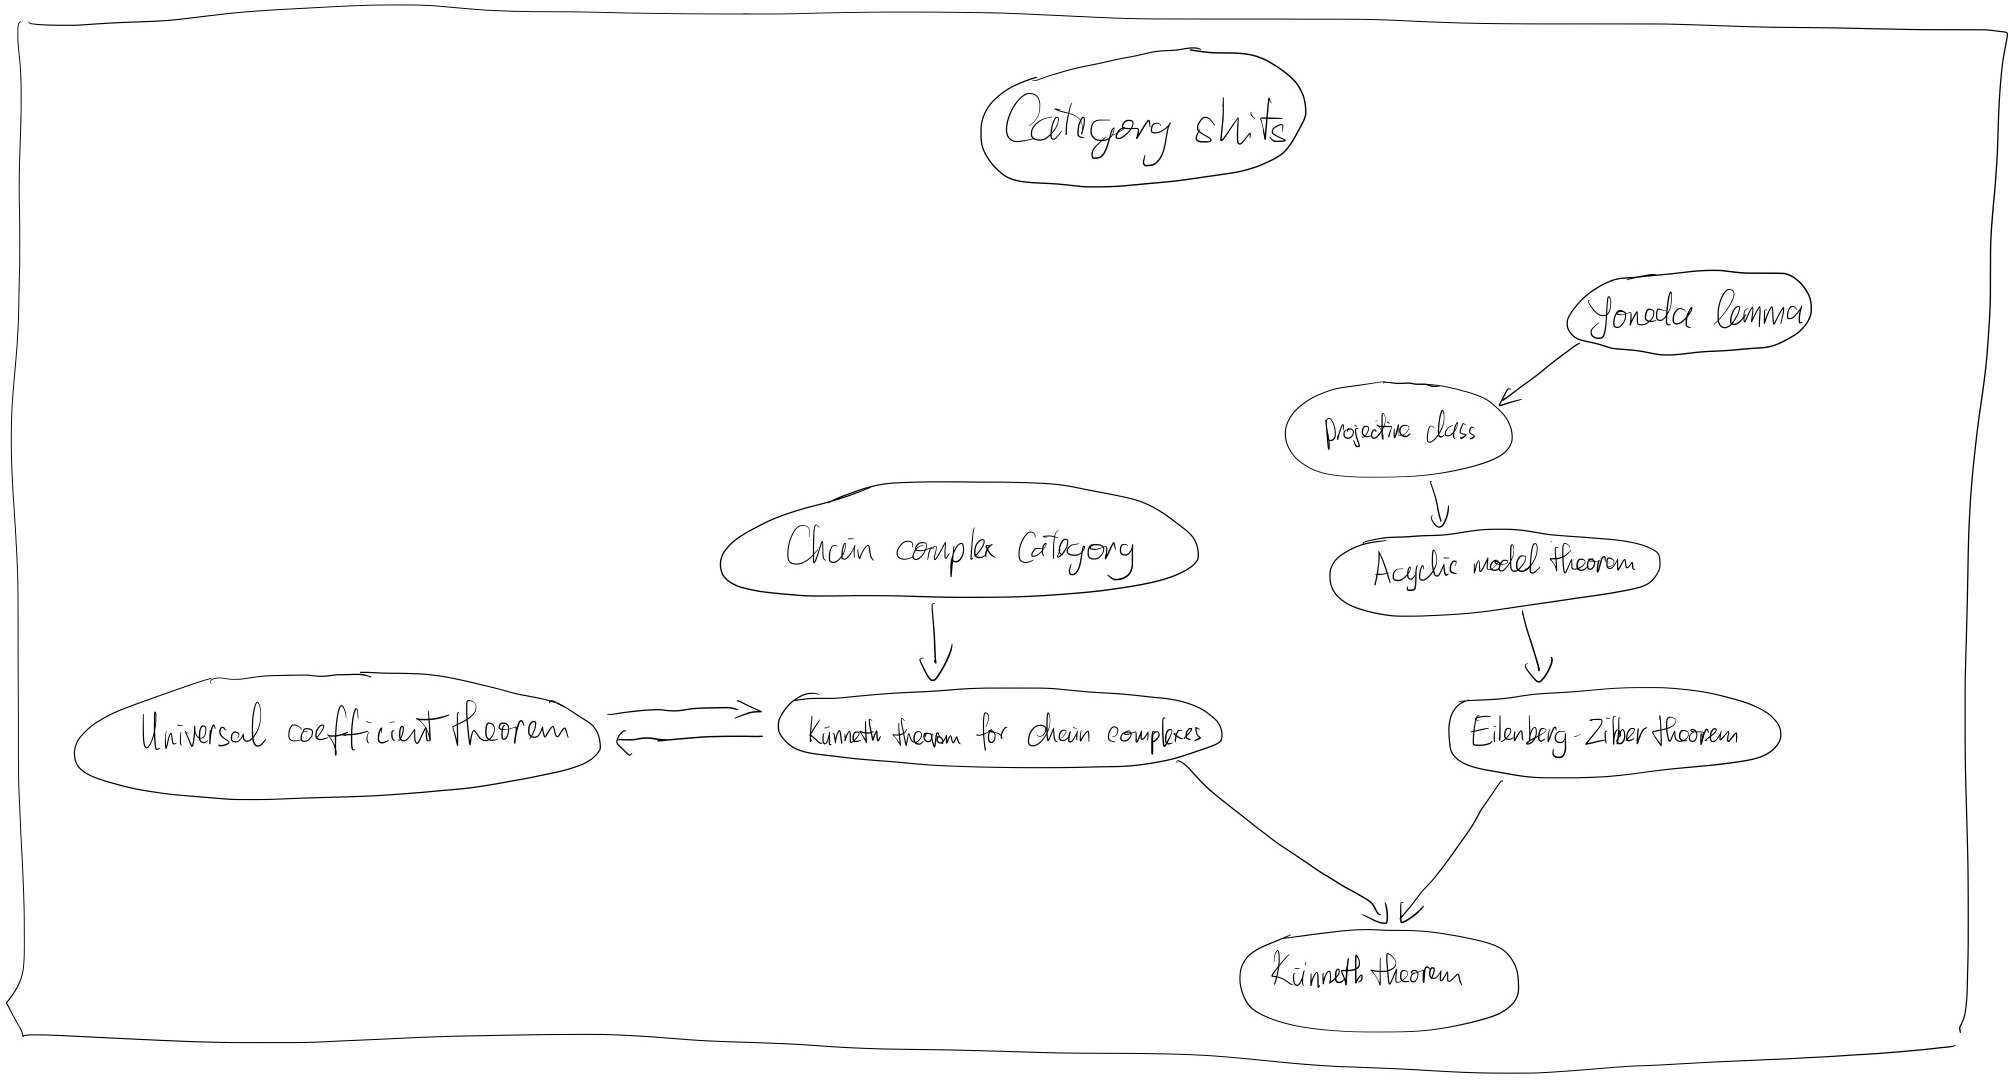 Category shits
Yoneda lemma
Projective class
Chain complex Category
Acyclic model theorem
Universal coefficient theorem
Künneth theorem for chain complexes
Eilenberg-Zilber theorem
Künneth theorem